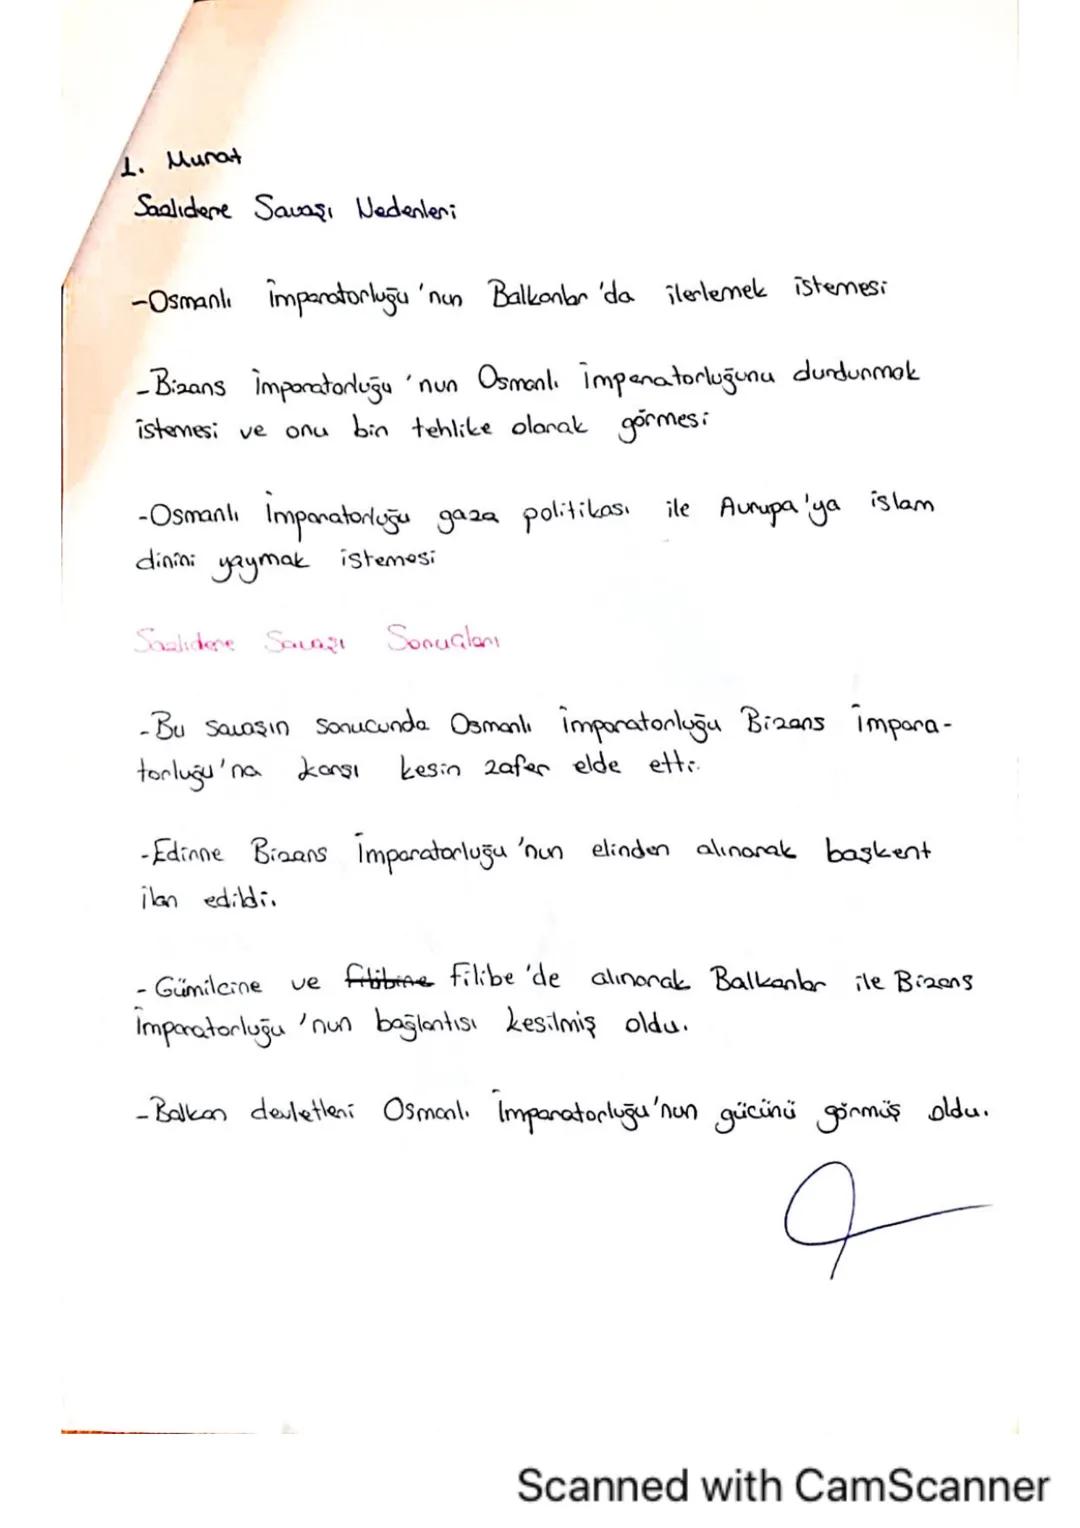 1. Murat
Sazlıdere Savaşı Nedenleri
-Osmanlı İmparatorluğu'nun Balkanlar'da ilerlemek istemesi
-Bizans İmparatorluğu'nun Osmanlı İmparatorluğunu durdurmak
istemesi ve onu bir tehlike olarak görmesi
-Osmanlı İmparatorluğu gaza politikası ile Avrupa'ya islam
dinini yaymak istemesi
Sazlıdere Savaşı Sonuçları
-Bu savaşın sonucunda Osmanlı İmparatorluğu Bizans İmpara-
torluğu'na karşı kesin zafer elde etti.
-Edirne Bizans İmparatorluğu'nun elinden alınarak başkent
ilan edildi.
-Gümilcine ve filibine Filibe'de alınarak Balkanlar ile Bizans
İmparatorluğu'nun bağlantısı kesilmiş oldu.
-Balkan devletleri Osmanlı İmparatorluğu'nun gücünü görmüş oldu.
Scanned with CamScanner